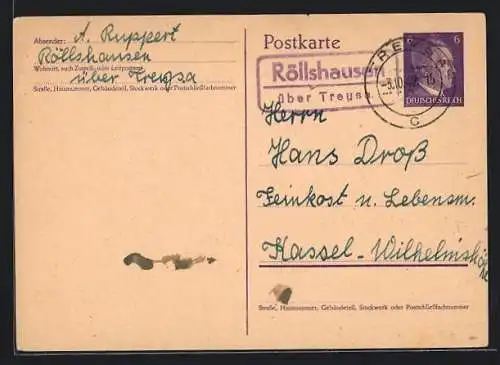 Absender: A. Ruppert
Röllshausen
Wohnort, auch Zustell- oder Leitpostamt
über Treysa
Straße, Hausnummer, Gebäudeteil, Stockwerk oder Postschließfachnummer
Postkarte
6
DEUTSCHES REICH
Röllshausen
über Treysa
c
Herrn
Hans Droß
Feinkost u. Lebensm.
Kassel-Wilhelmshöhe
Straße, Hausnummer, Gebäudeteil, Stockwerk oder Postschließfachnummer